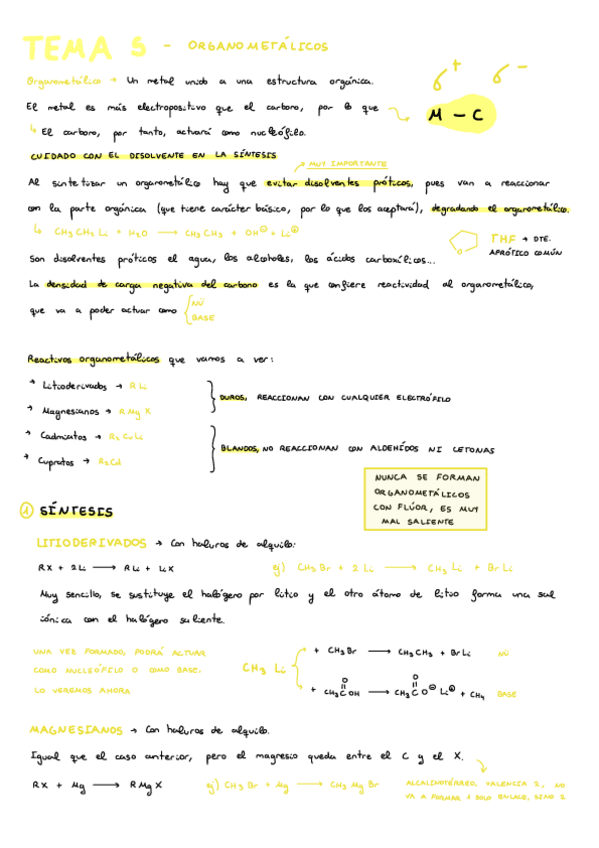 TEMA 5 - ORGANOMETÁLICOS
Organometálico → Un metal unido a una estructura orgánica.
El metal es más electropositivo que el carbono, por lo que
↳ El carbono, por tanto, actuará como nucleófilo.
δ+ δ-
M - C
CUIDADO CON EL DISOLVENTE EN LA SÍNTESIS
MUY IMPORTANTE
Al sintetizar un organometálico hay que evitar disolventes próticos, pues van a reaccionar
con la parte orgánica (que tiene carácter básico, por lo que los aceptará), degradando el organometálico.
↳ CH3CH2Li + H2O → CH3CH3 + OH⊖ + Li⊕
O
THF → DTE.
APRÓTICO COMÚN
Son disolventes próticos el agua, los alcoholes, los ácidos carboxílicos...
La densidad de carga negativa del carbono es la que confiere reactividad al organometálico,
que va a poder actuar como
NÜ
BASE
Reactivos organometálicos que vamos a ver:
→ Litioderivados → R Li
→ Magnesianos → R Mg X
DUROS, REACCIONAN CON CUALQUIER ELECTRÓFILO
→ Cadmiatos → R2CuLi
→ Cupratos → R2Cd
BLANDOS, NO REACCIONAN CON ALDEHÍDOS NI CETONAS
NUNCA SE FORMAN
ORGANOMETÁLICOS
CON FLÚOR, ES MUY
MAL SALIENTE
1 SÍNTESIS
LITIODERIVADOS → Con haluros de alquilo:
RX + 2Li → RLi + LiX
ej) CH3Br + 2Li → CH3Li + BrLi
Muy sencillo, se sustituye el halógeno por litio y el otro átomo de litio forma una sal
iónica con el halógeno saliente.
UNA VEZ FORMADO, PODRÁ ACTUAR
COMO NUCLEÓFILO O COMO BASE.
LO VEREMOS AHORA
CH3 Li
+ CH3Br → CH3CH3 + BrLi NÜ
O O
+ CH3COH → CH3CO⊖ Li⊕ + CH4 BASE
MAGNESIANOS → Con haluros de alquilo.
Igual que el caso anterior, pero el magnesio queda entre el C y el X.
RX + Mg → RMgX
ej) CH3Br + Mg → CH3MgBr
ALCALINOTÉRREO, VALENCIA 2, NO
VA A FORMAR 1 SOLO ENLACE, SINO 2